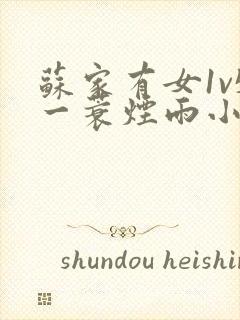 蘇家有女1v
一蓑煙雨小
shundou heishin